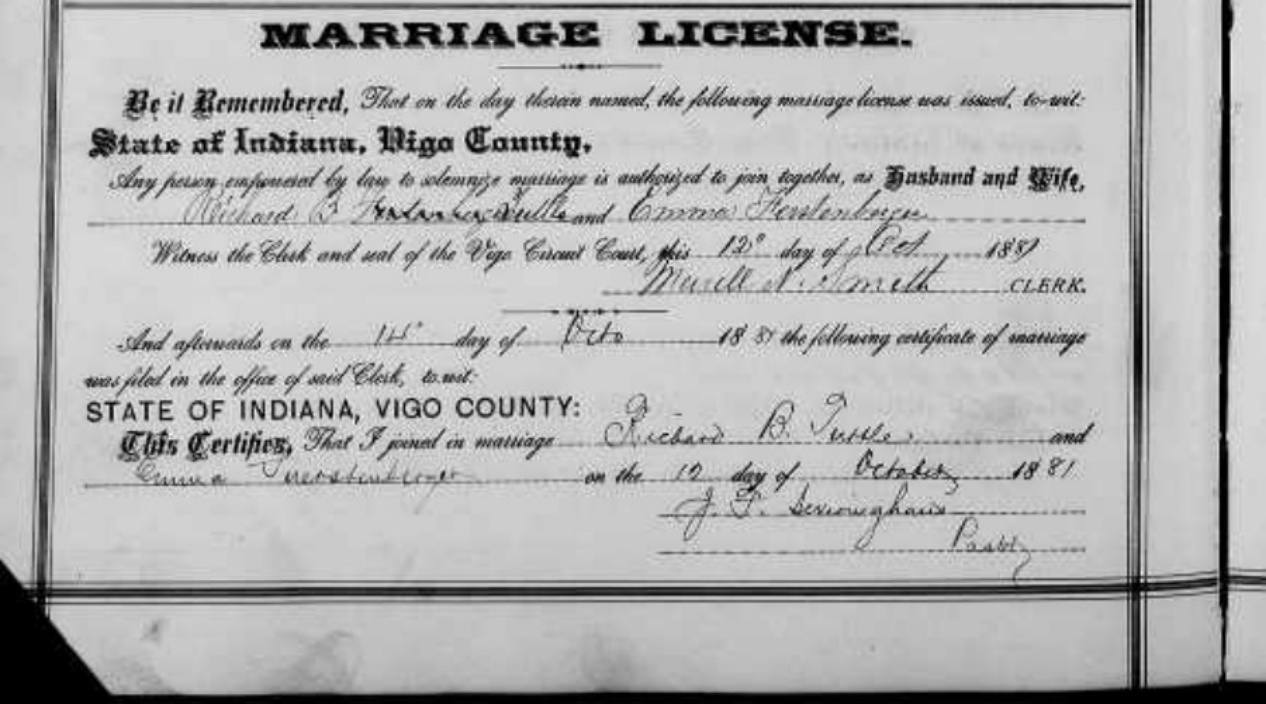 MARRIAGE LICENSE.
Be it Remembered, That on the day therein named, the following marriage license was issued, to-wit:
State of Indiana, Vigo County,
Any person empowered by law to solemnize marriage is authorized to join together, as Husband and Wife,
Richard B. Tuttle and Emma Ferstenberger
Witness the Clerk and seal of the Vigo Circuit Court, this 12" day of Oct 1881
Merrill N. Smith CLERK.
And afterwards on the day of Octo 1881 the following certificate of marriage
was filed in the office of said Clerk, to-wit:
STATE OF INDIANA, VIGO COUNTY:
This Certifies, That I joined in marriage Richard B. Tuttle and
Emma on the 12 day of October 1881
J. F. Severinghaus
Pastor